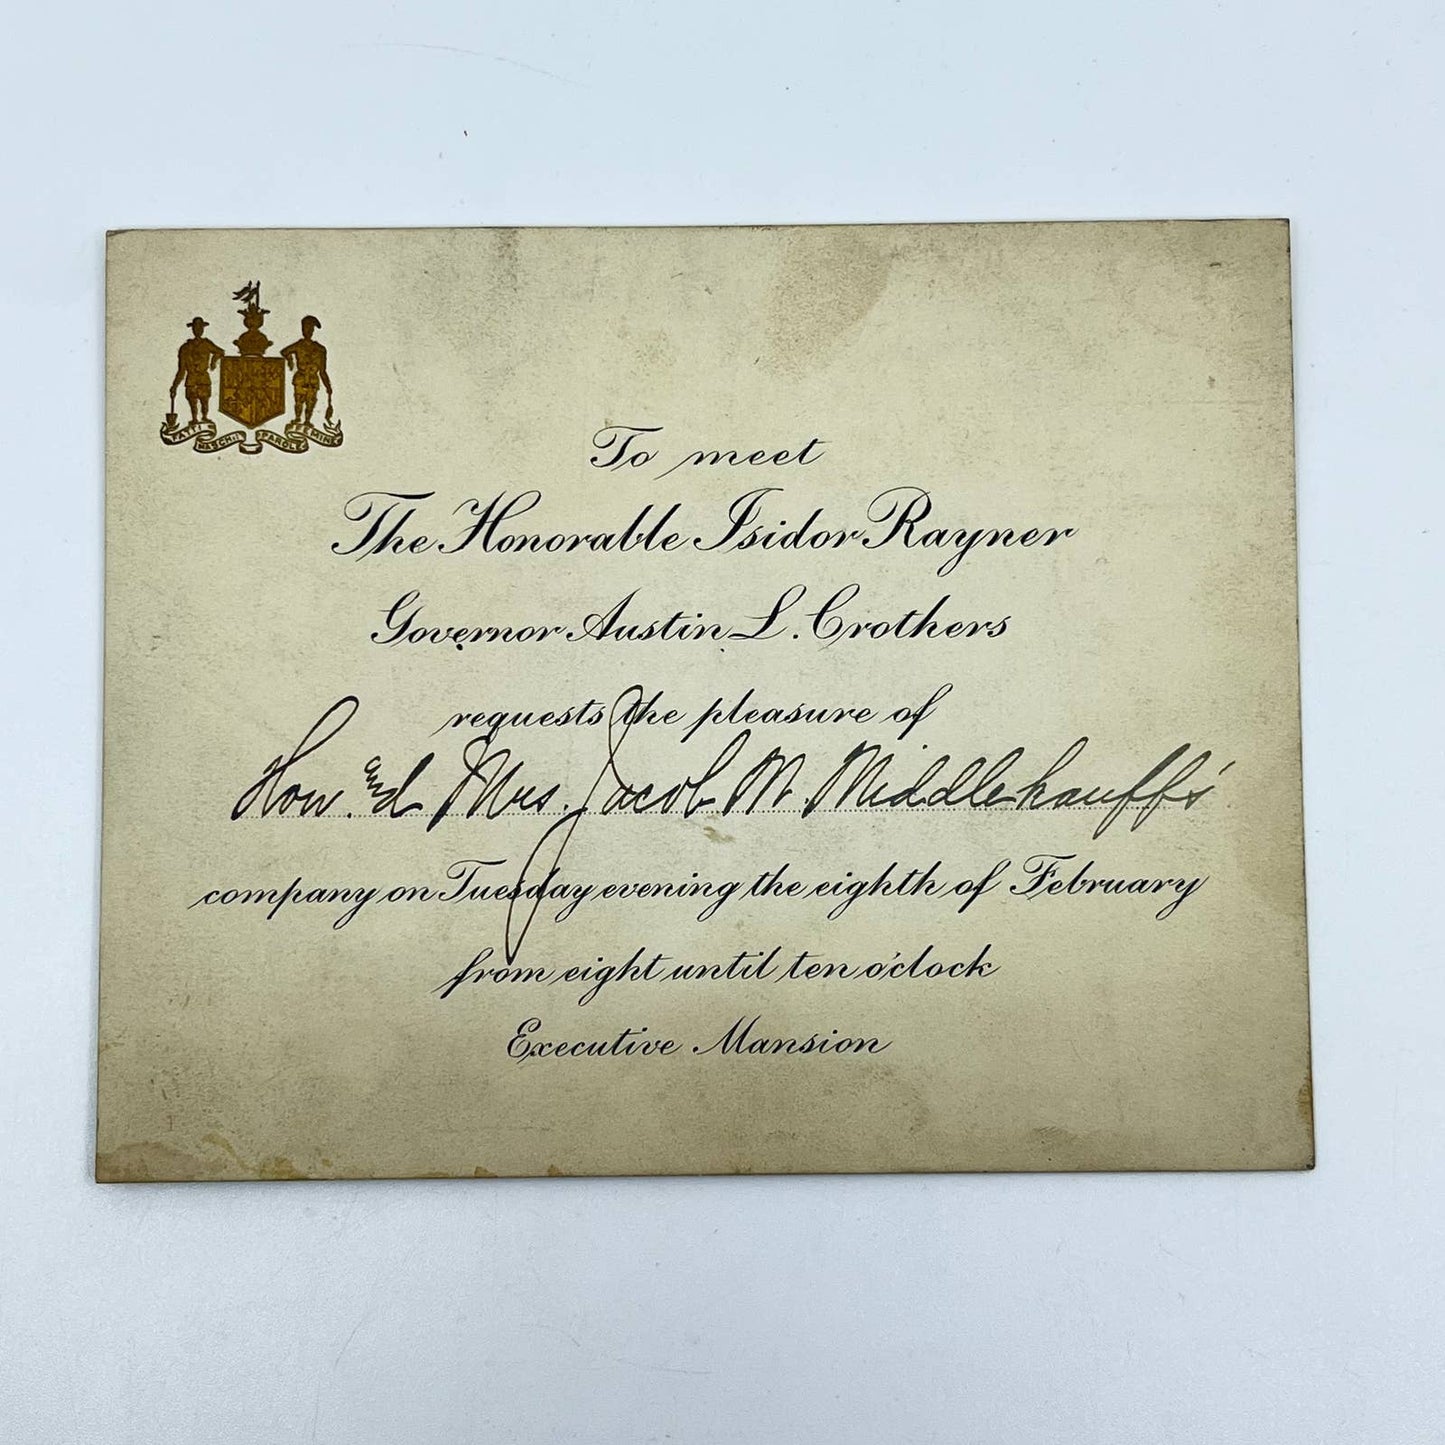 FATTI MASCHII PAROLE FEMINE
To meet
The Honorable Isidor Rayner
Governor Austin L. Crothers
requests the pleasure of
Hon. and Mrs. Jacob M. Middlekauff's
company on Tuesday evening the eighth of February
from eight until ten o'clock
Executive Mansion